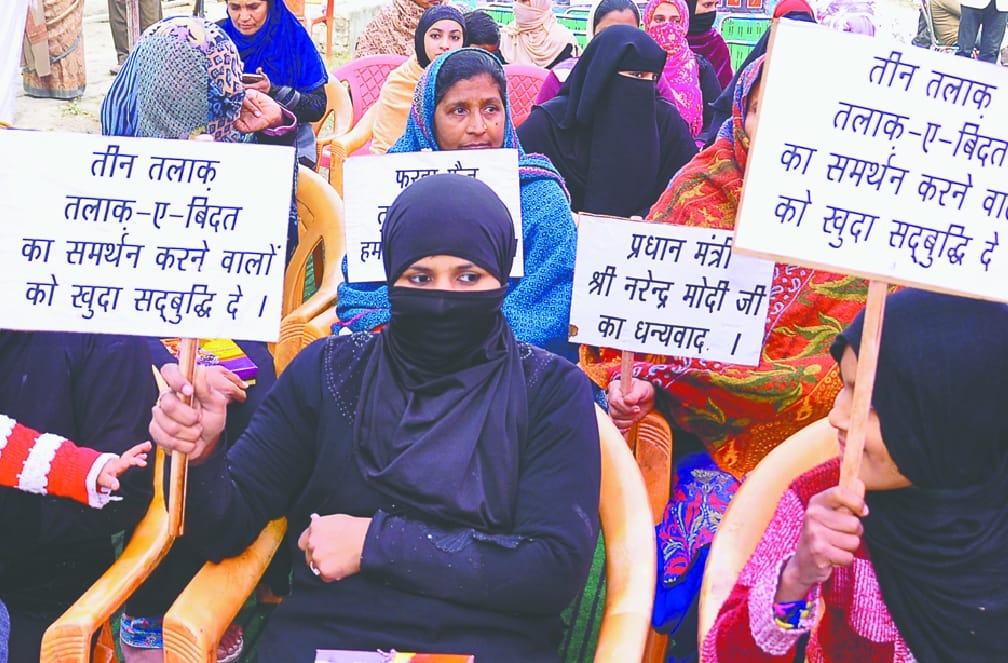 तीन तलाक़
तलाक़-ए-बिदत
का समर्थन करने वालों
को खुदा सद्‌बुद्धि दे ।
प्रधान मंत्री
श्री नरेन्द्र मोदी जी
का धन्यवाद. ।
तीन तलाक़
तलाक़-ए-बिदत
का समर्थन करने वा
को खुदा सद्‌बुद्धि दे